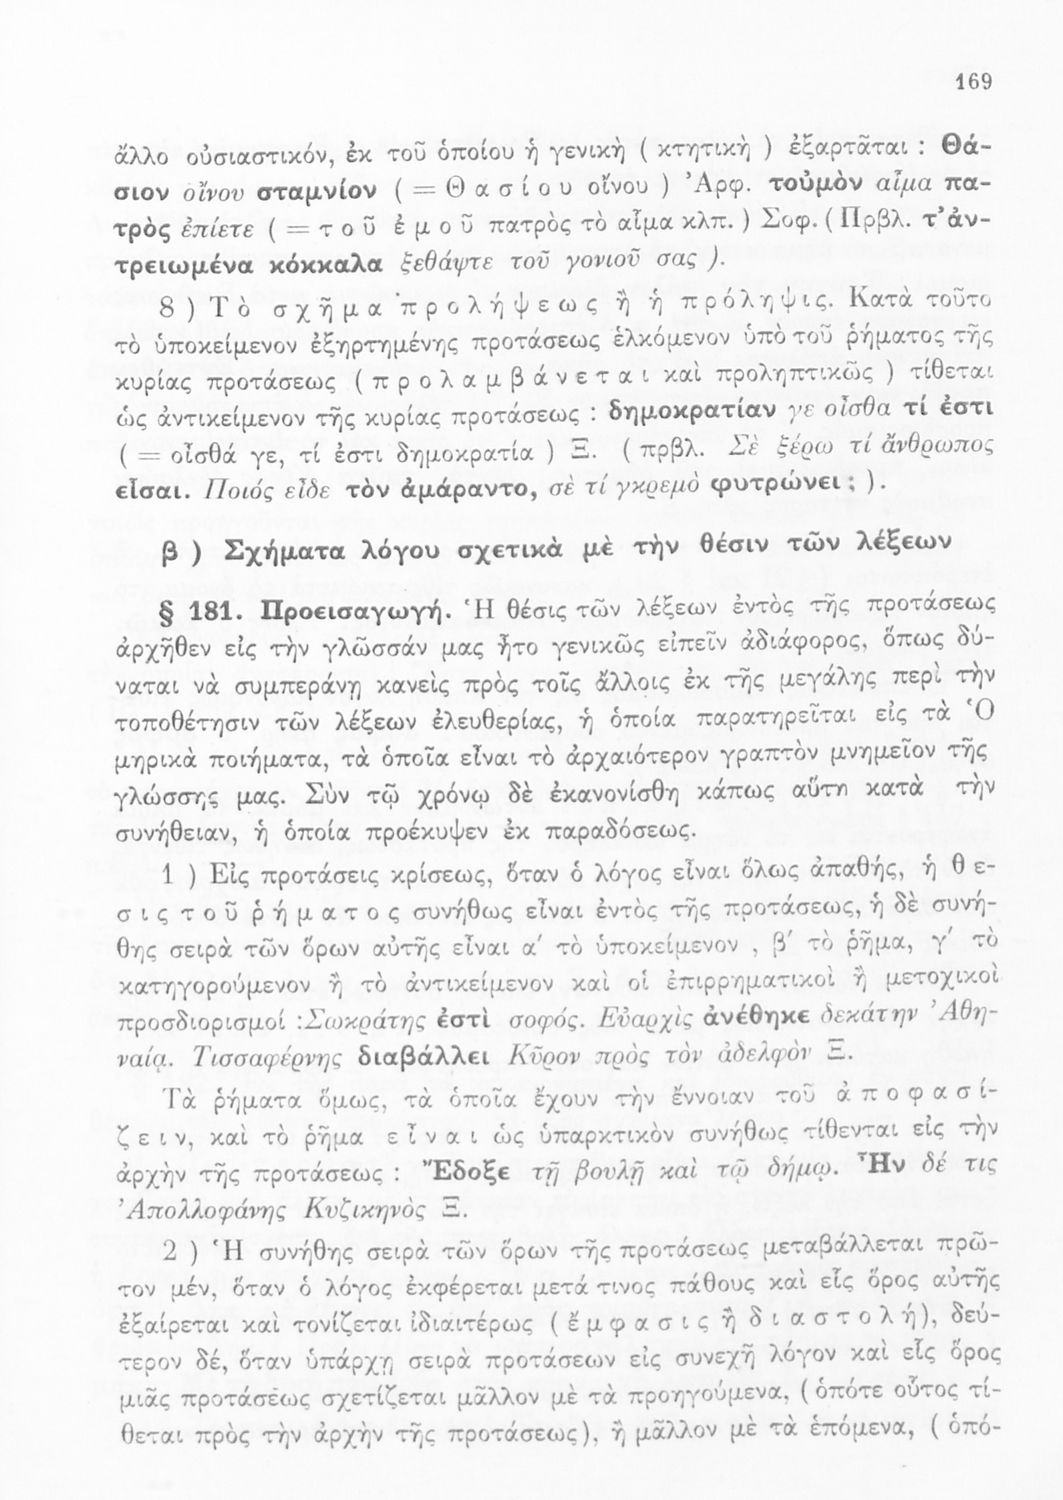 169
ἄλλο οὐσιαστικόν, ἐκ τοῦ ὁποίου ἡ γενικὴ ( κτητικὴ ) ἐξαρτᾶται : Θά-
σιον οἴνου σταμνίον ( = Θ α σ ί ο υ οἴνου ) Ἀρφ. τοὐμὸν αἷμα πα-
τρὸς ἐπίετε ( = τ ο ῦ ἐ μ ο ῦ πατρὸς τὸ αἷμα κλπ. ) Σοφ. ( Πρβλ. τ’ ἀν-
τρειωμένα κόκκαλα ξεθάψτε τοῦ γονιοῦ σας ).
8 ) Τ ὸ σ χ ῆ μ α π ρ ο λ ή ψ ε ω ς ἢ ἡ π ρ ό λ η ψ ι ς. Κατὰ τοῦτο
τὸ ὑποκείμενον ἐξηρτημένης προτάσεως ἑλκόμενον ὑπὸ τοῦ ῥήματος τῆς
κυρίας προτάσεως ( π ρ ο λ α μ β ά ν ε τ α ι καὶ προληπτικῶς ) τίθεται
ὡς ἀντικείμενον τῆς κυρίας προτάσεως : δημοκρατίαν γε οἶσθα τί ἐστι
( = οἶσθά γε, τί ἐστι δημοκρατία ) Ξ. ( πρβλ. Σὲ ξέρω τί ἄνθρωπος
εἶσαι. Ποιός εἶδε τὸν ἀμάραντο, σὲ τί γκρεμὸ φυτρώνει ; ).
β ) Σχήματα λόγου σχετικὰ μὲ τὴν θέσιν τῶν λέξεων
§ 181. Προεισαγωγή. Ἡ θέσις τῶν λέξεων ἐντὸς τῆς προτάσεως
ἀρχῆθεν εἰς τὴν γλῶσσάν μας ἦτο γενικῶς εἰπεῖν ἀδιάφορος, ὅπως δύ-
ναται νὰ συμπεράνῃ κανεὶς πρὸς τοῖς ἄλλοις ἐκ τῆς μεγάλης περὶ τὴν
τοποθέτησιν τῶν λέξεων ἐλευθερίας, ἡ ὁποία παρατηρεῖται εἰς τὰ Ὁ
μηρικὰ ποιήματα, τὰ ὁποῖα εἶναι τὸ ἀρχαιότερον γραπτὸν μνημεῖον τῆς
γλώσσης μας. Σὺν τῷ χρόνῳ δὲ ἐκανονίσθη κάπως αὕτη κατὰ τὴν
συνήθειαν, ἡ ὁποία προέκυψεν ἐκ παραδόσεως.
1 ) Εἰς προτάσεις κρίσεως, ὅταν ὁ λόγος εἶναι ὅλως ἀπαθής, ἡ θ ε-
σ ι ς τ ο ῦ ῥ ή μ α τ ο ς συνήθως εἶναι ἐντὸς τῆς προτάσεως, ἡ δὲ συνή-
θης σειρὰ τῶν ὅρων αὐτῆς εἶναι α′ τὸ ὑποκείμενον , β′ τὸ ῥῆμα, γ′ τὸ
κατηγορούμενον ἢ τὸ ἀντικείμενον καὶ οἱ ἐπιρρηματικοὶ ἢ μετοχικοὶ
προσδιορισμοί : Σωκράτης ἐστὶ σοφός. Εὐαρχὶς ἀνέθηκε δεκάτην Ἀθη-
ναίᾳ. Τισσαφέρνης διαβάλλει Κῦρον πρὸς τὸν ἀδελφὸν Ξ.
Τὰ ῥήματα ὅμως, τὰ ὁποῖα ἔχουν τὴν ἔννοιαν τοῦ ἀ π ο φ α σ ί-
ζ ε ι ν, καὶ τὸ ῥῆμα ε ἶ ν α ι ὡς ὑπαρκτικὸν συνήθως τίθενται εἰς τὴν
ἀρχὴν τῆς προτάσεως : Ἔδοξε τῇ βουλῇ καὶ τῷ δήμῳ. Ἦν δέ τις
Ἀπολλοφάνης Κυζικηνὸς Ξ.
2 ) Ἡ συνήθης σειρὰ τῶν ὅρων τῆς προτάσεως μεταβάλλεται πρῶ-
τον μέν, ὅταν ὁ λόγος ἐκφέρεται μετά τινος πάθους καὶ εἷς ὅρος αὐτῆς
ἐξαίρεται καὶ τονίζεται ἰδιαιτέρως ( ἔ μ φ α σ ι ς ἢ δ ι α σ τ ο λ ή ), δεύ-
τερον δέ, ὅταν ὑπάρχῃ σειρὰ προτάσεων εἰς συνεχῆ λόγον καὶ εἷς ὅρος
μιᾶς προτάσεως σχετίζεται μᾶλλον μὲ τὰ προηγούμενα, ( ὁπότε οὗτος τί-
θεται πρὸς τὴν ἀρχὴν τῆς προτάσεως ), ἢ μᾶλλον μὲ τὰ ἑπόμενα, ( ὁπό-